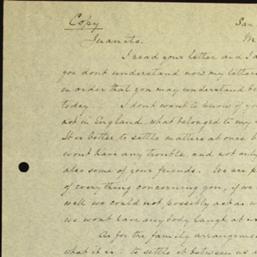 Copy San
Juanito. M
I read your letter and I a
you dont understand now my letters
in order that you may understand be
today. I dont want to know if yo
not in England, what belonged to my
It is better to settle matters at once b
wont have any trouble and not only
also some of your friends. We are p
of everything concerning you, if we
well we could not, possibly act as w
we wont have any body laugh at
As for the family arrangemen
what it is: to settle it between us